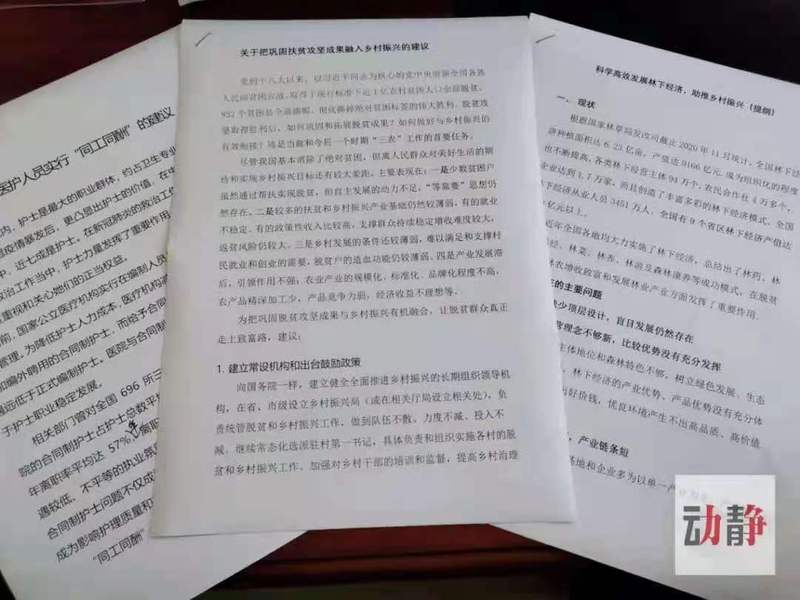 医护人员实行“同工同酬”的建议
内，护士是最大的职业群体，约占卫生专业
疫情暴发后，更凸显出护士的价值，在中
中，近七成是护士。在新冠肺炎的救治工作
救治工作当中，护士力量发挥了重要作用
重视和关心她们的正当权益。
前，国家公立医疗机构实行在编制人员
管理，为降低护士人力成本，医疗机构
和编外聘用的合同制护士，而给予合同
遇远低于正式编制护士，医院与合同制
于护士职业稳定发展。
相关部门曾对全国 696 所三
院的合同制护士占护士总数平
年离职率平均达 57%
遇较低、不平等的执业氛
合同制护士问题不仅成
成为影响护理质量和
“同工同酬”
关于把巩固扶贫攻坚成果融入乡村振兴的建议
党的十八大以来，以习近平同志为核心的党中央带领全国各族
人民向贫困宣战，取得了现行标准下近1亿农村贫困人口全部脱贫，
832 个贫困县全部摘帽，彻底撕掉绝对贫困标签的伟大胜利。脱贫攻
坚取得胜利后，如何巩固和拓展脱贫成果？如何做好与乡村振兴的
有效衔接？将是当前和今后一个时期“三农”工作的首要任务。
尽管我国基本消除了绝对贫困，但离人民群众对美好生活的期
待和实现乡村振兴目标还有较大差距，主要表现在：一是少数贫困户
虽然通过帮扶实现脱贫，但自主发展的动力不足，“等靠要”思想仍
然存在。二是较多的扶贫和乡村振兴产业基础仍然较薄弱，有的就业
不稳定，有的政策性收入比较高，支撑群众持续稳定增收难度较大，
返贫风险仍较大。三是乡村发展的条件还较薄弱，难以满足和支撑村
民就业和创业的需要，脱贫户的造血功能仍较薄弱。四是产业发展滞
后，引领作用不强；农业产业的规模化、标准化、品牌化程度不高，
农产品精深加工少，产品竞争力弱，经济收益不理想等。
为把巩固脱贫攻坚成果与乡村振兴有机融合，让脱贫群众真正
走上致富路，建议：
1. 建立常设机构和出台鼓励政策
向国务院一样，建立健全全面推进乡村振兴的长期组织领导机
构，在省、市级设立乡村振兴局（或在相关厅局设立相关处），负
责统管脱贫和乡村振兴工作，做到队伍不散、力度不减、投入不
减。继续常态化选派驻村第一书记，具体负责和组织实施各村的脱
贫和乡村振兴工作。加强对乡村干部的培训和监督，提高乡村治理
科学高效发展林下经济，助推乡村振兴（提纲）
一、现状
根据国家林草局发改司截止 2020 年 11 月统计，全国林下经
济种植面积达 6.23 亿亩，产值达 8166 亿元，成为组织化的程度
也不断提高，各类林下经营主体 94 万个，农民合作社 4 万多个，
企业达到 1.7 万家，而且创造了丰富多彩的林下经济模式，全国
下经济从业人员 3451 万人，全国有 9 个省区林下经济产值达
亿元以上。
近年全国各地均大力实施了林下经济，总结出了林药、林
林菜、林养、林游及森林康养等成功模式，在脱贫
林农增收致富和发展林业产业方面发挥了重要作用。
在的主要问题
缺少顶层设计，盲目发展仍然存在
营理念不够新，比较优势没有充分发挥
主体地位和森林特色不够，树立绿色发展、生态
林下经济的产业优势、产品优势没有充分体
出好价钱，优良环境产生不出高品质、高价值
产业链条短
基地和企业多为以单一产
动静